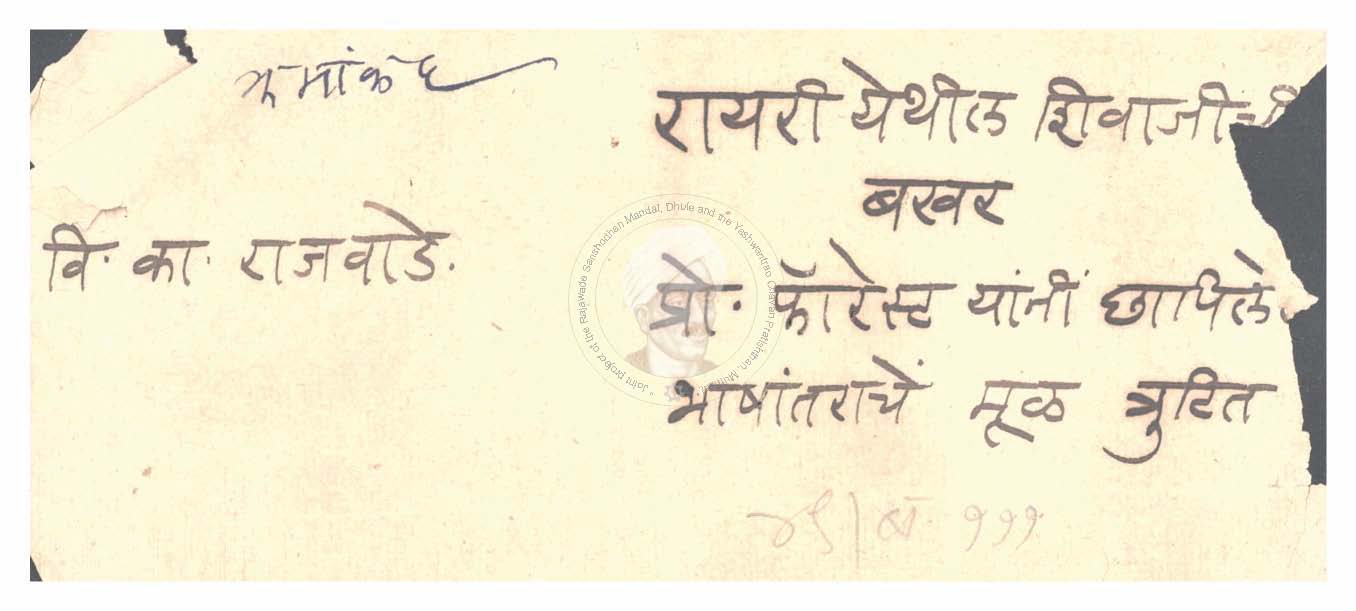 क्रमांक ६
रायरी येथील शिवाजीची
बखर
वि. का. राजवाडे.
प्रो. फॉरेस्ट यांनीं छापिले
भाषांतराचें मूळ त्रुटित
Joint project of the Rajawade Sanshodhan Mandal, Dhule and the Yashwantrao Chavan Pratishthan, Mumbai
१११